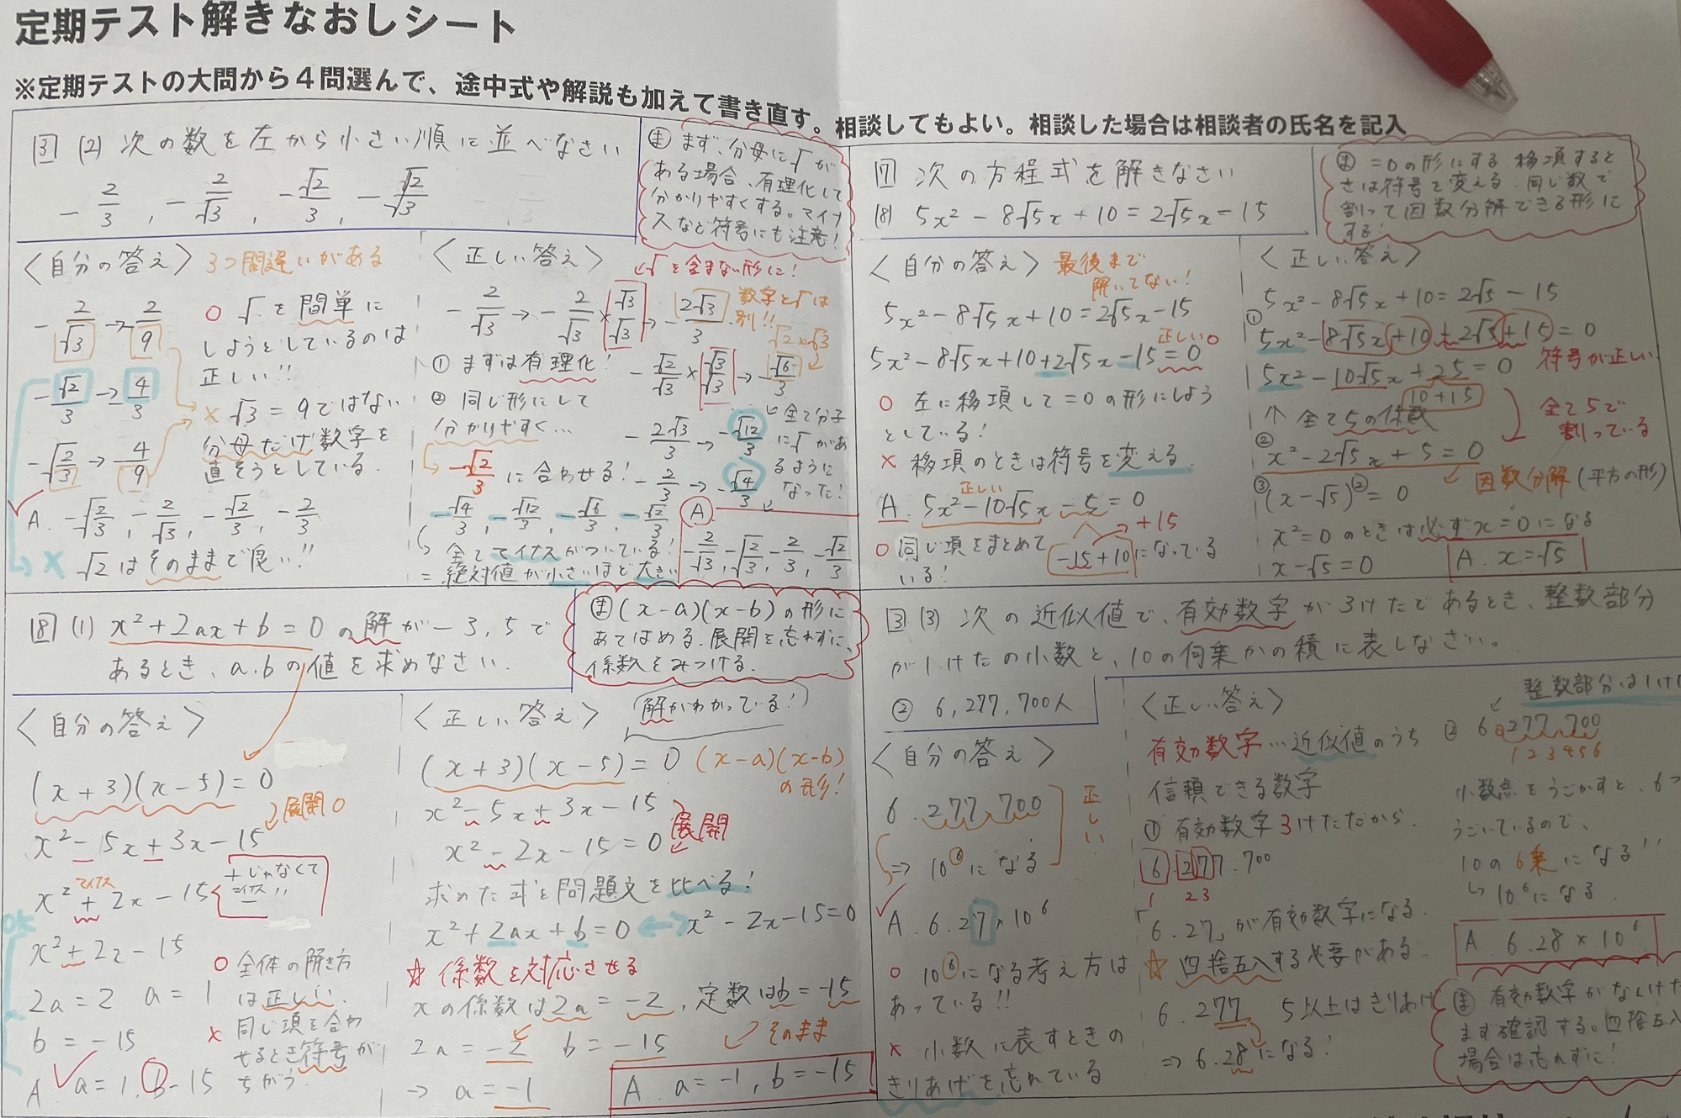 定期テスト解きなおしシート
※定期テストの大問から4問選んで、途中式や解説も加えて書き直す。相談してもよい。相談した場合は相談者の氏名を記入
3 (2) 次の数を左から小さい順に並べなさい
-2/3, -2/√3, -√2/3, -√2/√3
ま まず、分母に√が
ある場合、有理化して
分かりやすくする。マイナ
スなど符号にも注意!
<自分の答え> 3つ間違いがある
-2/√3 → -2/9
-√2/3 → -4/3
-√2/3 → -4/9
A. -√2/3, -2/√3, -√2/3, -2/3
× √2はそのままで良い!!
○ √を簡単に
しようとしているのは
正しい!!
× √3=9ではない
分母だけ数字を
直そうとしている.
<正しい答え>
√を含まない形に!
-2/√3 → -2/√3 × √3/√3 → -2√3/3
数字と√は
別!!
√2×√3
① まずは有理化!
-√2/√3 × √3/√3 → -√6/3
② 同じ形にして
分かりやすく…
-√2/3 に合わせる!
-2√3/3 → -√12/3
-2/3 → -√4/3
全て分子
に√があ
るように
なった!
-√4/3, -√12/3, -√6/3, -√2/3
全てマイナスがついている!
=絶対値が小さいほど大きい
A
-2/√3, -√2/3, -2/3, -√2/3
7 次の方程式を解きなさい
(8) 5x²-8√5x+10=2√5x-15
ま =0の形にする. 移項すると
きは符号を変える. 同じ数で
割って因数分解できる形に
する!
<自分の答え> 最後まで
解いてない!
5x²-8√5x+10=2√5x-15
正しい○
5x²-8√5x+10+2√5x-15=0
○ 左に移項して=0の形にしよう
としている!
× 移項のときは符号を変える.
正しい
A. 5x²-10√5x-5=0
→+15
○ 同じ項をまとめて
いる!
-15+10 になっている
<正しい答え>
5x²-8√5x+10=2√5-15
① 5x²-8√5x+10-2√5+15=0
符号が正しい
5x²-10√5x+25=0
10+15
↑ 全て5の係数
全て5で
割っている
② x²-2√5x+5=0
因数分解(平方の形)
③ (x-√5)²=0
x²=0のときは必ずx=0になる
x-√5=0
A. x=√5
8 (1) x²+2ax+b=0の解が-3,5で
あるとき、a.bの値を求めなさい.
ま (x-a)(x-b)の形に
あてはめる. 展開を忘れずに、
係数をみつける.
<自分の答え>
(x+3)(x-5)=0
展開○
x²-5x+3x-15
マイナス
x²+2x-15
+じゃなくて
マイナス!!
x²+2x-15
2a=2 a=1
b=-15
A. a=1, b-15
○ 全体の解き方
は正しい.
× 同じ項を合わ
せるとき符号が
ちがう.
<正しい答え>
解がわかっている!
(x+3)(x-5)=0 (x-a)(x-b)
の形!
x²-5x+3x-15
展開
x²-2x-15=0
求めた式と問題文を比べる!
x²+2ax+b=0 ↔ x²-2x-15=0
☆ 係数を対応させる
xの係数は2a=-2, 定数はb=-15
そのまま
2a=-2 b=-15
→ a=-1
A. a=-1, b=-15
3 (3) 次の近似値で、有効数字が3けたであるとき、整数部分
が1けたの小数と、10の何乗かの積に表しなさい。
② 6,277,700人
<自分の答え>
6.277,700
⇒ 10⁶になる
正しい
A. 6.27×10⁶
○ 10⁶になる考え方は
あっている!!
× 小数に表すときの
きりあげを忘れている
<正しい答え>
有効数字…近似値のうち
信頼できる数字
① 有効数字3けただから
6.277.700
1 2 3
6.27」が有効数字になる.
☆ 四捨五入する必要がある.
6.277 5以上はきりあげ
⇒6.28になる!
整数部分は1け
② 6.277,700
1 2 3 4 5 6
小数点をうごかすと、6つ
うごいているので、
10の6乗になる!!
→10⁶になる.
A. 6.28×10⁶
ま 有効数字がなんけた
まず確認する。四捨五入
場合は忘れずに!